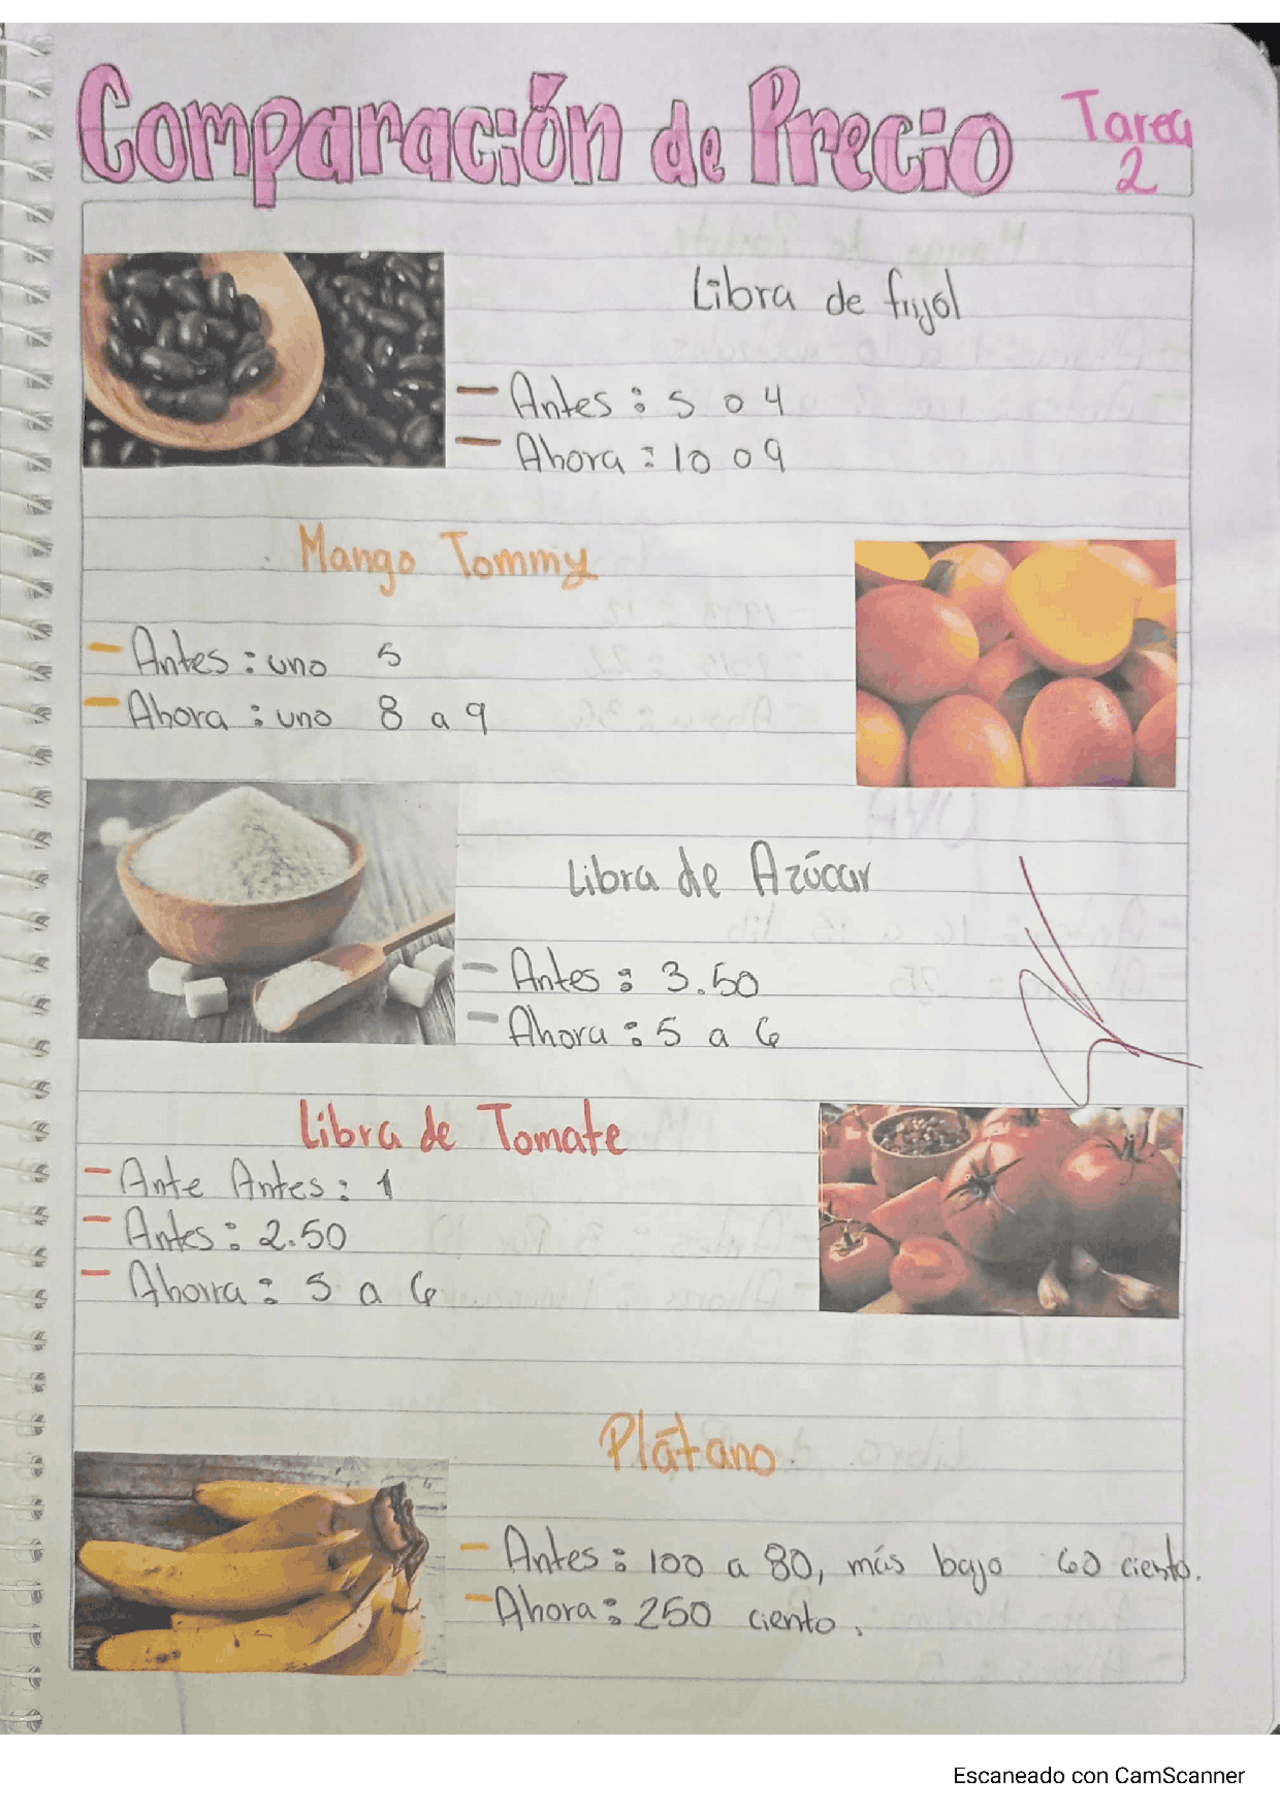 Comparación de Precio
Tarea
2
Libra de frijol
- Antes : 5 o 4
- Ahora : 10 o 9
Mango Tommy
- Antes : uno 5
- Ahora : uno 8 a 9
Libra de Azúcar
- Antes : 3.50
- Ahora : 5 a 6
Libra de Tomate
- Ante Antes : 1
- Antes : 2.50
- Ahorra : 5 a 6
Plátano
- Antes : 100 a 80, más bajo 60 ciento.
- Ahora : 250 ciento.
Escaneado con CamScanner